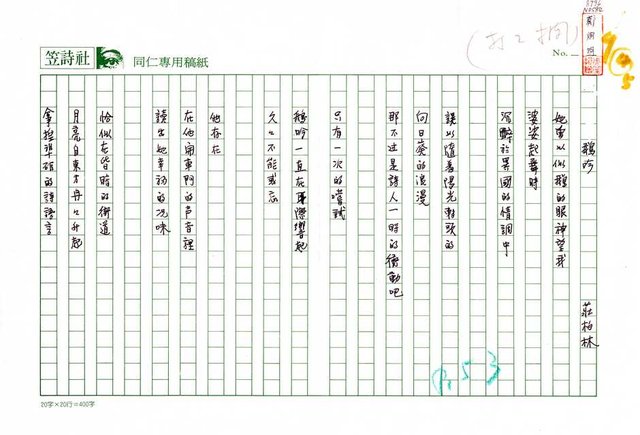 笠詩社
同仁專用稿紙
No.
鵝吟
莊柏林
她東以似鵝的眼神望我
婆娑起舞時
沉醉於異國的情調中
誤以隨着陽光斜頭的
向日葵的浪漫
那不过是詩人一時的衝動吧
只有一次的嚐試
鵝吟一直在耳際響起
久久不能或忘
他存在
在他開車門的声音裡
讀出她幸福的况味
恰似在昔時的街道
月亮自東方冉冉升起
拿捏準确的詩語言
20字×20行=400字
P.53